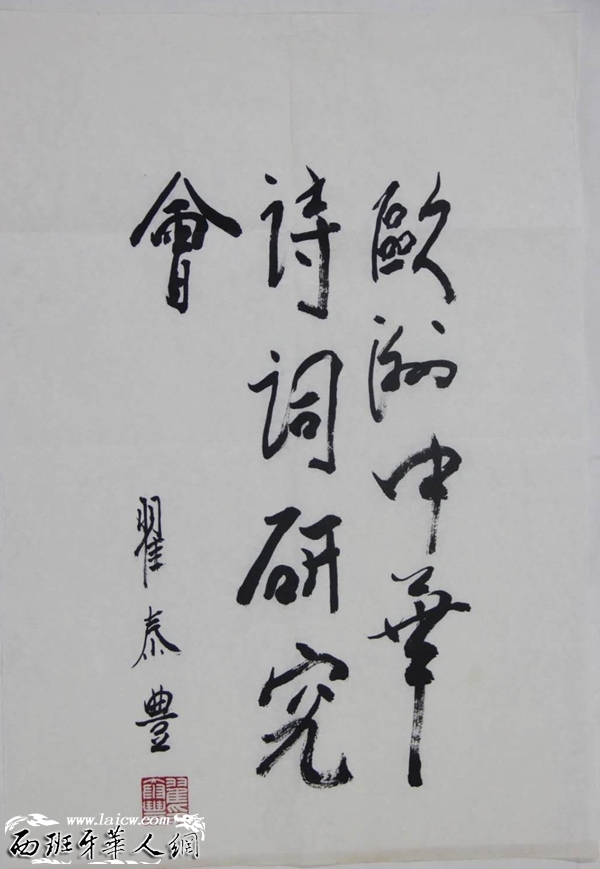 歐洲中華
詩詞研究
會
翟泰豐
www.laicw.com
西班牙華人網